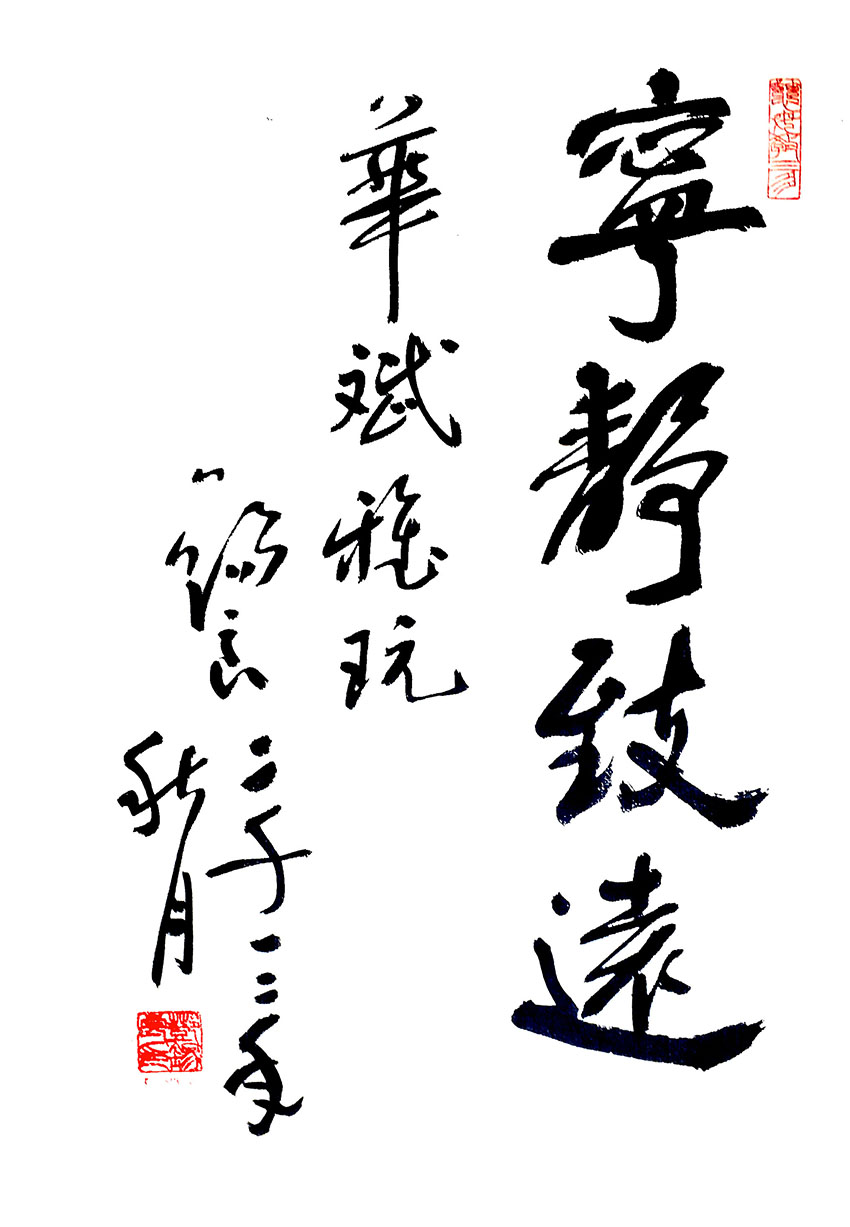 寧靜致遠
華斌雅玩
二千一二年
秋月